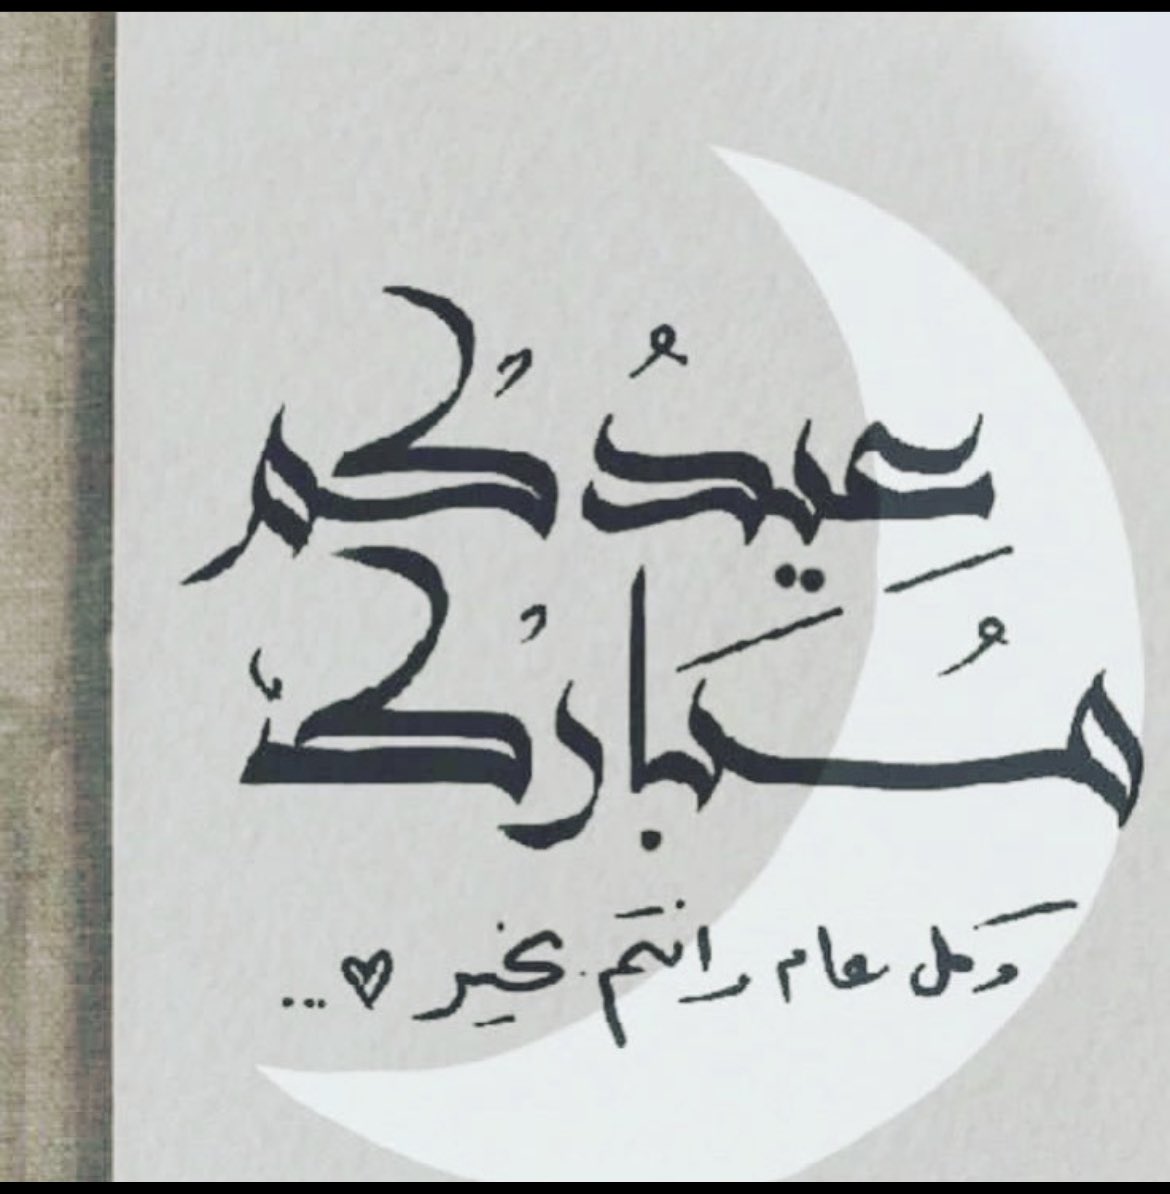 عِيدُكُم
مُبَارُك
وَكل عام وانتَم بخير ♥...